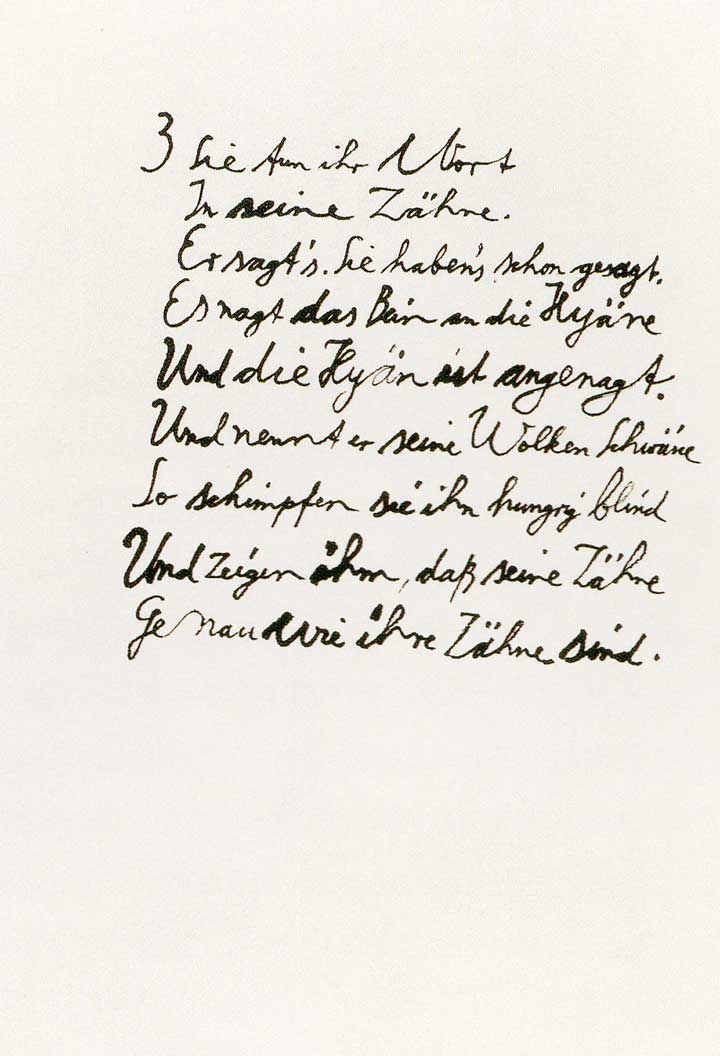 3 Sie tun ihr Wort
In seine Zähne.
Er sagt's. Sie haben's schon gesagt.
Es nagt das an die Hyäne
Und die Hyän ist angenagt.
Und nennt er seine Wolken Schwäne
So schimpfen sie ihn hungry blind
Und zeigen ihm, daß seine Zähne
Genau wie ihre Zähne sind.